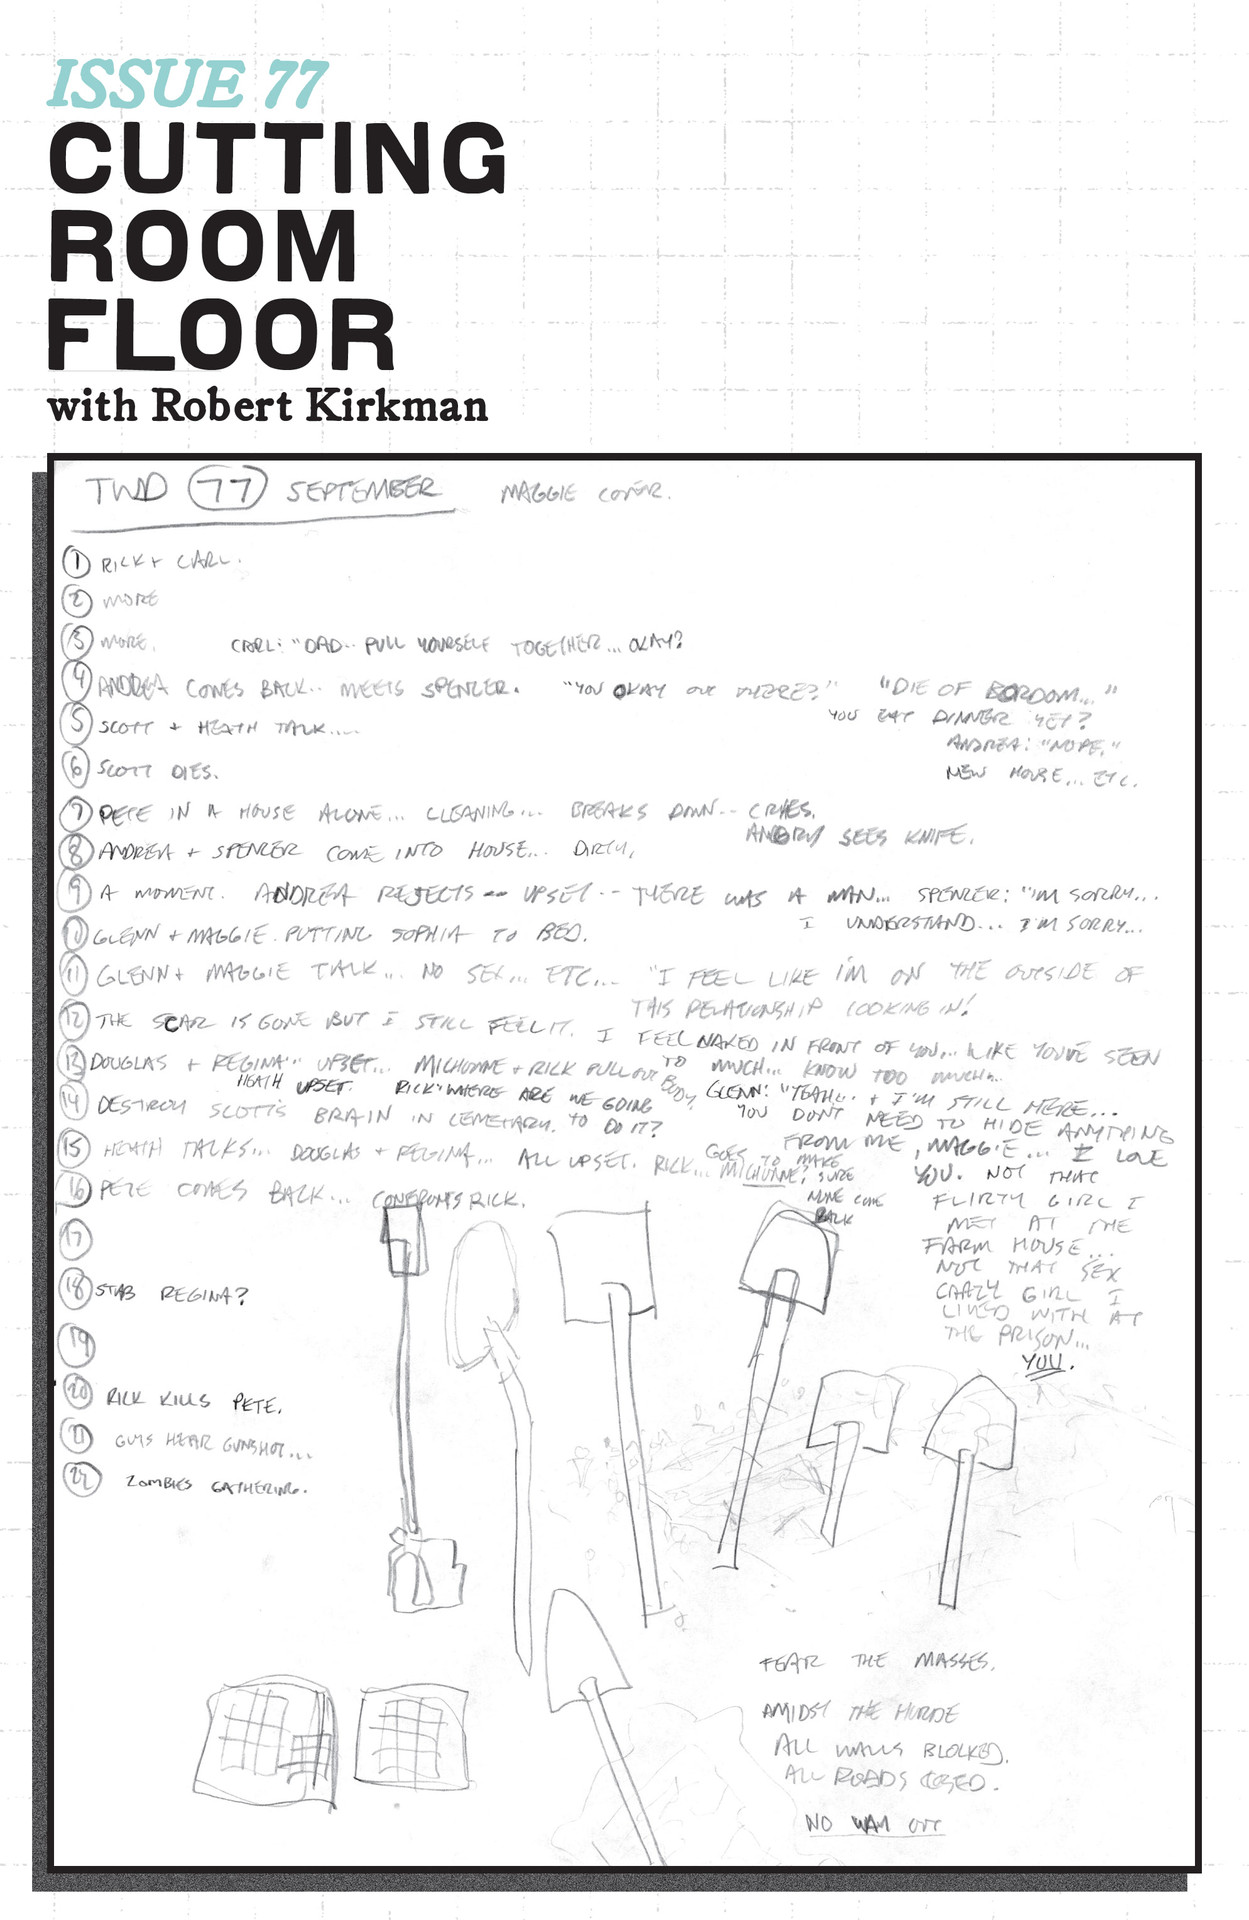 ISSUE 77
CUTTING
ROOM
FLOOR
with Robert Kirkman
TWD 77 SEPTEMBER MAGGIE COVER.
1 RICK + CARL.
2 MORE
3 MORE. CARL: "DAD.. PULL YOURSELF TOGETHER... OKAY?
4 ANDREA COMES BACK.. MEETS SPENCER. "YOU OKAY OUT THERE?" "DIE OF BORDOM..."
YOU EAT DINNER YET?
ANDREA: "NOPE."
NEW HOUSE... ETC.
5 SCOTT + HEATH TALK....
6 SCOTT DIES.
7 PETE IN A HOUSE ALONE... CLEANING... BREAKS DOWN-- CRIES.
ANGRY SEES KNIFE.
8 ANDREA + SPENCER COME INTO HOUSE... DIRTY,
9 A MOMENT. ANDREA REJECTS -- UPSET -- THERE WAS A MAN... SPENCER: "I'M SORRY...
I UNDERSTAND... I'M SORRY...
10 GLENN + MAGGIE PUTTING SOPHIA TO BED.
11 GLENN + MAGGIE TALK... NO SEX... ETC... "I FEEL LIKE I'M ON THE OUTSIDE OF
THIS RELATIONSHIP LOOKING IN!
12 THE SCAR IS GONE BUT I STILL FEEL IT. I FEEL NAKED IN FRONT OF YOU... LIKE YOU'VE SEEN
TO MUCH... KNOW TOO MUCH...
13 DOUGLAS + REGINA... UPSET... MICHONNE + RICK PULL OUT BODY.
HEATH UPSET. RICK "WHERE ARE WE GOING
TO DO IT?
GLENN: "YEAH... + I'M STILL HERE...
14 DESTROY SCOTT'S BRAIN IN CEMETARY.
YOU DON'T NEED TO HIDE ANYTHING
FROM ME, MAGGIE... I LOVE
YOU. NOT THAT
FLIRTY GIRL I
MET AT THE
FARM HOUSE...
NOT THAT SEX
CRAZY GIRL I
LIVED WITH AT
THE PRISON...
YOU.
15 HEATH TALKS... DOUGLAS + REGINA... ALL UPSET. RICK... MICHONNE?
GOES TO MAKE
SURE
NONE COME
BACK
16 PETE COMES BACK... CONFRONTS RICK.
17
18 STAB REGINA?
19
20 RICK KILLS PETE.
21 GUYS HEAR GUNSHOT...
22 ZOMBIES GATHERING.
FEAR THE MASSES.
AMIDST THE HURDE
ALL WALLS BLOCKED.
ALL ROADS CLOSED.
NO WAY OUT